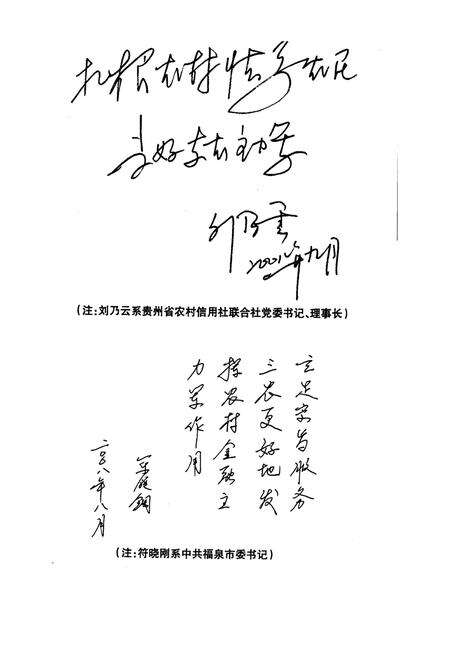 扎根农村情系农民
当好支农主力军
刘乃云
2008年九月
(注:刘乃云系贵州省农村信用社联合社党委书记、理事长)
立足宗旨服务
三农更好地发
挥农村金融主
力军作用
二〇〇八年八月
(注:符晓刚系中共福泉市委书记)